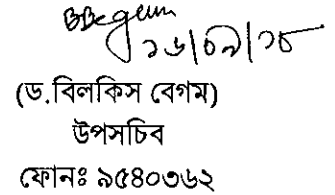 BBegum
১৬/০৯/১৮
(ড.বিলকিস বেগম)
উপসচিব
ফোনঃ ৯৫৪০৩৬২